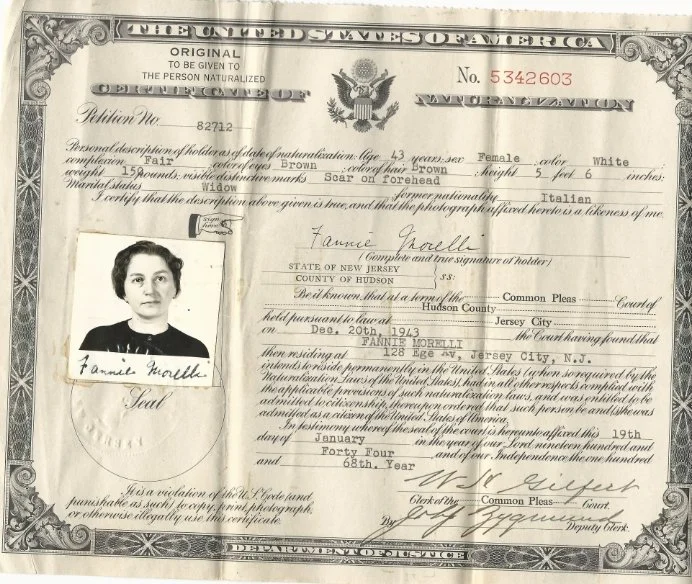 THE UNITED STATES OF AMERICA
ORIGINAL
TO BE GIVEN TO
THE PERSON NATURALIZED
No. 5342603
CERTIFICATE OF NATURALIZATION
Petition No. 82712
Personal description of holder as of date of naturalization: Age 43 years; sex Female; color White
complexion Fair; color of eyes Brown; color of hair Brown; height 5 feet 6 inches;
weight 158 pounds; visible distinctive marks Scar on forehead
Marital status Widow former nationality Italian
I certify that the description above given is true, and that the photograph affixed hereto is a likeness of me.
sign here
Fannie Morelli
(Complete and true signature of holder)
STATE OF NEW JERSEY
COUNTY OF HUDSON
ss:
Be it known that at a term of the Common Pleas Court of
Hudson County
held pursuant to law at Jersey City
on Dec. 20th, 1943 the Court having found that
FANNIE MORELLI
then residing at 128 Ege Av, Jersey City, N.J.
intends to reside permanently in the United States (when so required by the
Naturalization Laws of the United States), had in all other respects complied with
the applicable provisions of such naturalization laws, and was entitled to be
admitted to citizenship, thereupon ordered that such person be and (s)he was
admitted as a citizen of the United States of America.
In testimony whereof the seal of the court is hereunto affixed this 19th
day of January in the year of our Lord nineteen hundred and
Forty Four and of our Independence the one hundred
and 68th. Year
Fannie Morelli
Seal
It is a violation of the U.S. Code (and
punishable as such) to copy, print, photograph,
or otherwise illegally use this certificate.
Clerk of the Common Pleas Court.
By Deputy Clerk.
DEPARTMENT OF JUSTICE